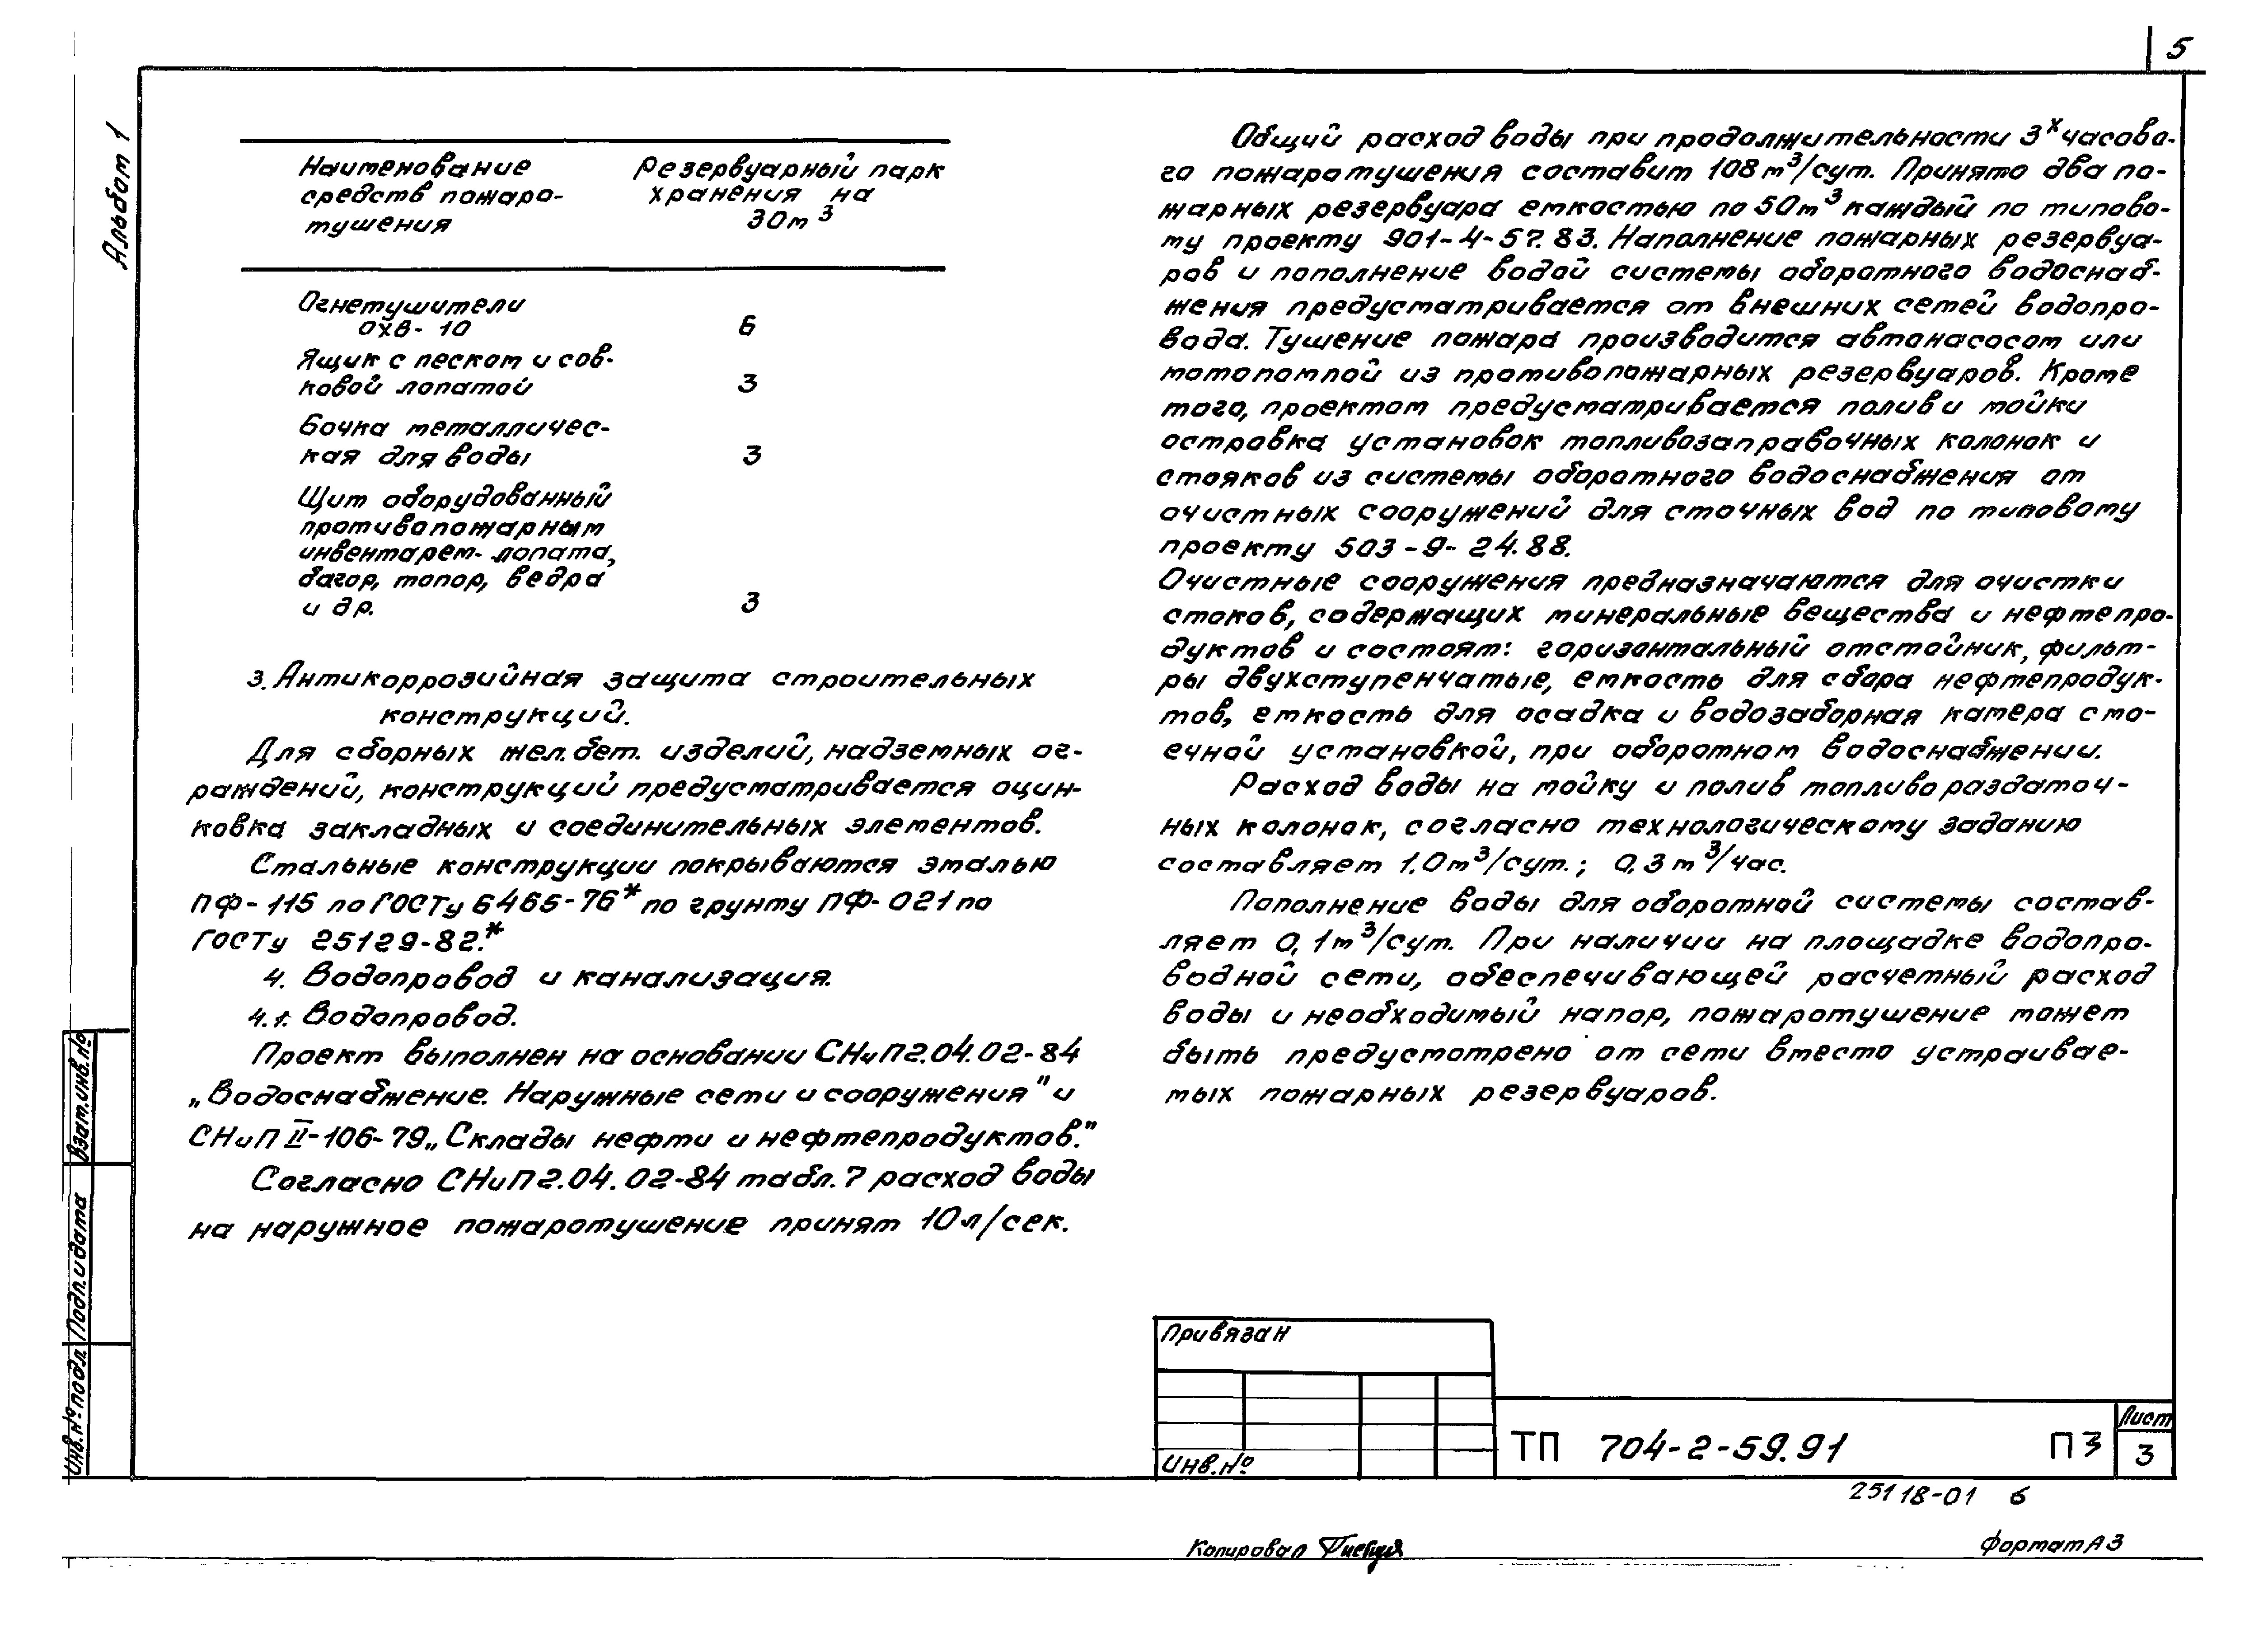 5
Альбом 1
Наименование средств пожаро-тушения
Резервуарный парк хранения на 30м³
Огнетушители
ОХВ-10 6
Ящик с песком и сов-
ковой лопатой 3
Бочка металличес-
кая для воды 3
Щит оборудованный
противопожарным
инвентарем-лопата,
багор, топор, ведра
и др. 3
3. Антикоррозийная защита строительных
конструкций.
Для сборных жел.бет. изделий, надземных ог-
раждений, конструкций предусматривается оцин-
ковка закладных и соединительных элементов.
Стальные конструкции покрываются эмалью
ПФ-115 по ГОСТу 6465-76* по грунту ПФ-021 по
ГОСТу 25129-82.*
4. Водопровод и канализация.
4.1. Водопровод.
Проект выполнен на основании СНиП 2.04.02-84
„Водоснабжение. Наружные сети и сооружения" и
СНиП II-106-79 „Склады нефти и нефтепродуктов."
Согласно СНиП 2.04.02-84 табл. 7 расход воды
на наружное пожаротушение принят 10л/сек.
Общий расход воды при продолжительности 3х часово-
го пожаротушения составит 108м³/сут. Принято два по-
жарных резервуара емкостью по 50м³ каждый по типово-
му проекту 901-4-57.83. Наполнение пожарных резервуа-
ров и пополнение водой системы оборотного водоснаб-
жения предусматривается от внешних сетей водопро-
вода. Тушение пожара производится автонасосом или
мотопомпой из противопожарных резервуаров. Кроме
того, проектом предусматривается полив и мойки
островка установок топливозаправочных колонок и
стояков из системы оборотного водоснабжения от
очистных сооружений для сточных вод по типовому
проекту 503-9-24.88.
Очистные сооружения предназначаются для очистки
стоков, содержащих минеральные вещества и нефтепро-
дуктов и состоят: горизонтальный отстойник, фильт-
ры двухступенчатые, емкость для сбора нефтепродук-
тов, емкость для осадка и водозаборная камера с мо-
ечной установкой, при оборотном водоснабжении.
Расход воды на мойку и полив топливораздаточ-
ных колонок, согласно технологическому заданию
составляет 1,0м³/сут.; 0,3м³/час.
Пополнение воды для оборотной системы состав-
ляет 0,1м³/сут. При наличии на площадке водопро-
водной сети, обеспечивающей расчетный расход
воды и необходимый напор, пожаротушение может
быть предусмотрено от сети вместо устраивае-
мых пожарных резервуаров.
Взам.инв.№
Подп. и дата
Инв.№ подл.
Привязан
Инв.№
ТП 704-2-59.91 ПЗ
Лист
3
25118-01 6
Копировал
Формат А3